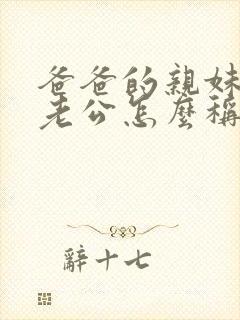 爸爸的親妹
老公怎麼稱
辭十七